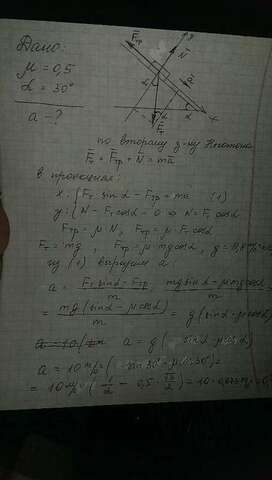 Дано:
μ = 0,5
α = 30°
a - ?
F̄тр
N̄
y
x
ā
α
α
F̄т
по второму з-ну Ньютона
F̄т + F̄тр + N̄ = mā
в проекциях:
x: { Fт sinα - Fтр = ma (1)
y: { N - Fт cosα = 0 ⇒ N = Fт cosα
Fтр = μ·N, Fтр = μ·Fт cosα
Fт = mg, Fтр = μmg cosα, g =
из (1) выразим a
a = (Fт sinα - Fтр)/m = (mg sinα - μmg cosα)/m
= mg(sinα - μcosα)/m = g(sinα - μcosα)
a = g(sinα - μcosα)
a = 10 м/с² (sin30° - μcos30°) =
= 10 м/с² · (1/2 - 0,5 · √3/2) = 10 ·